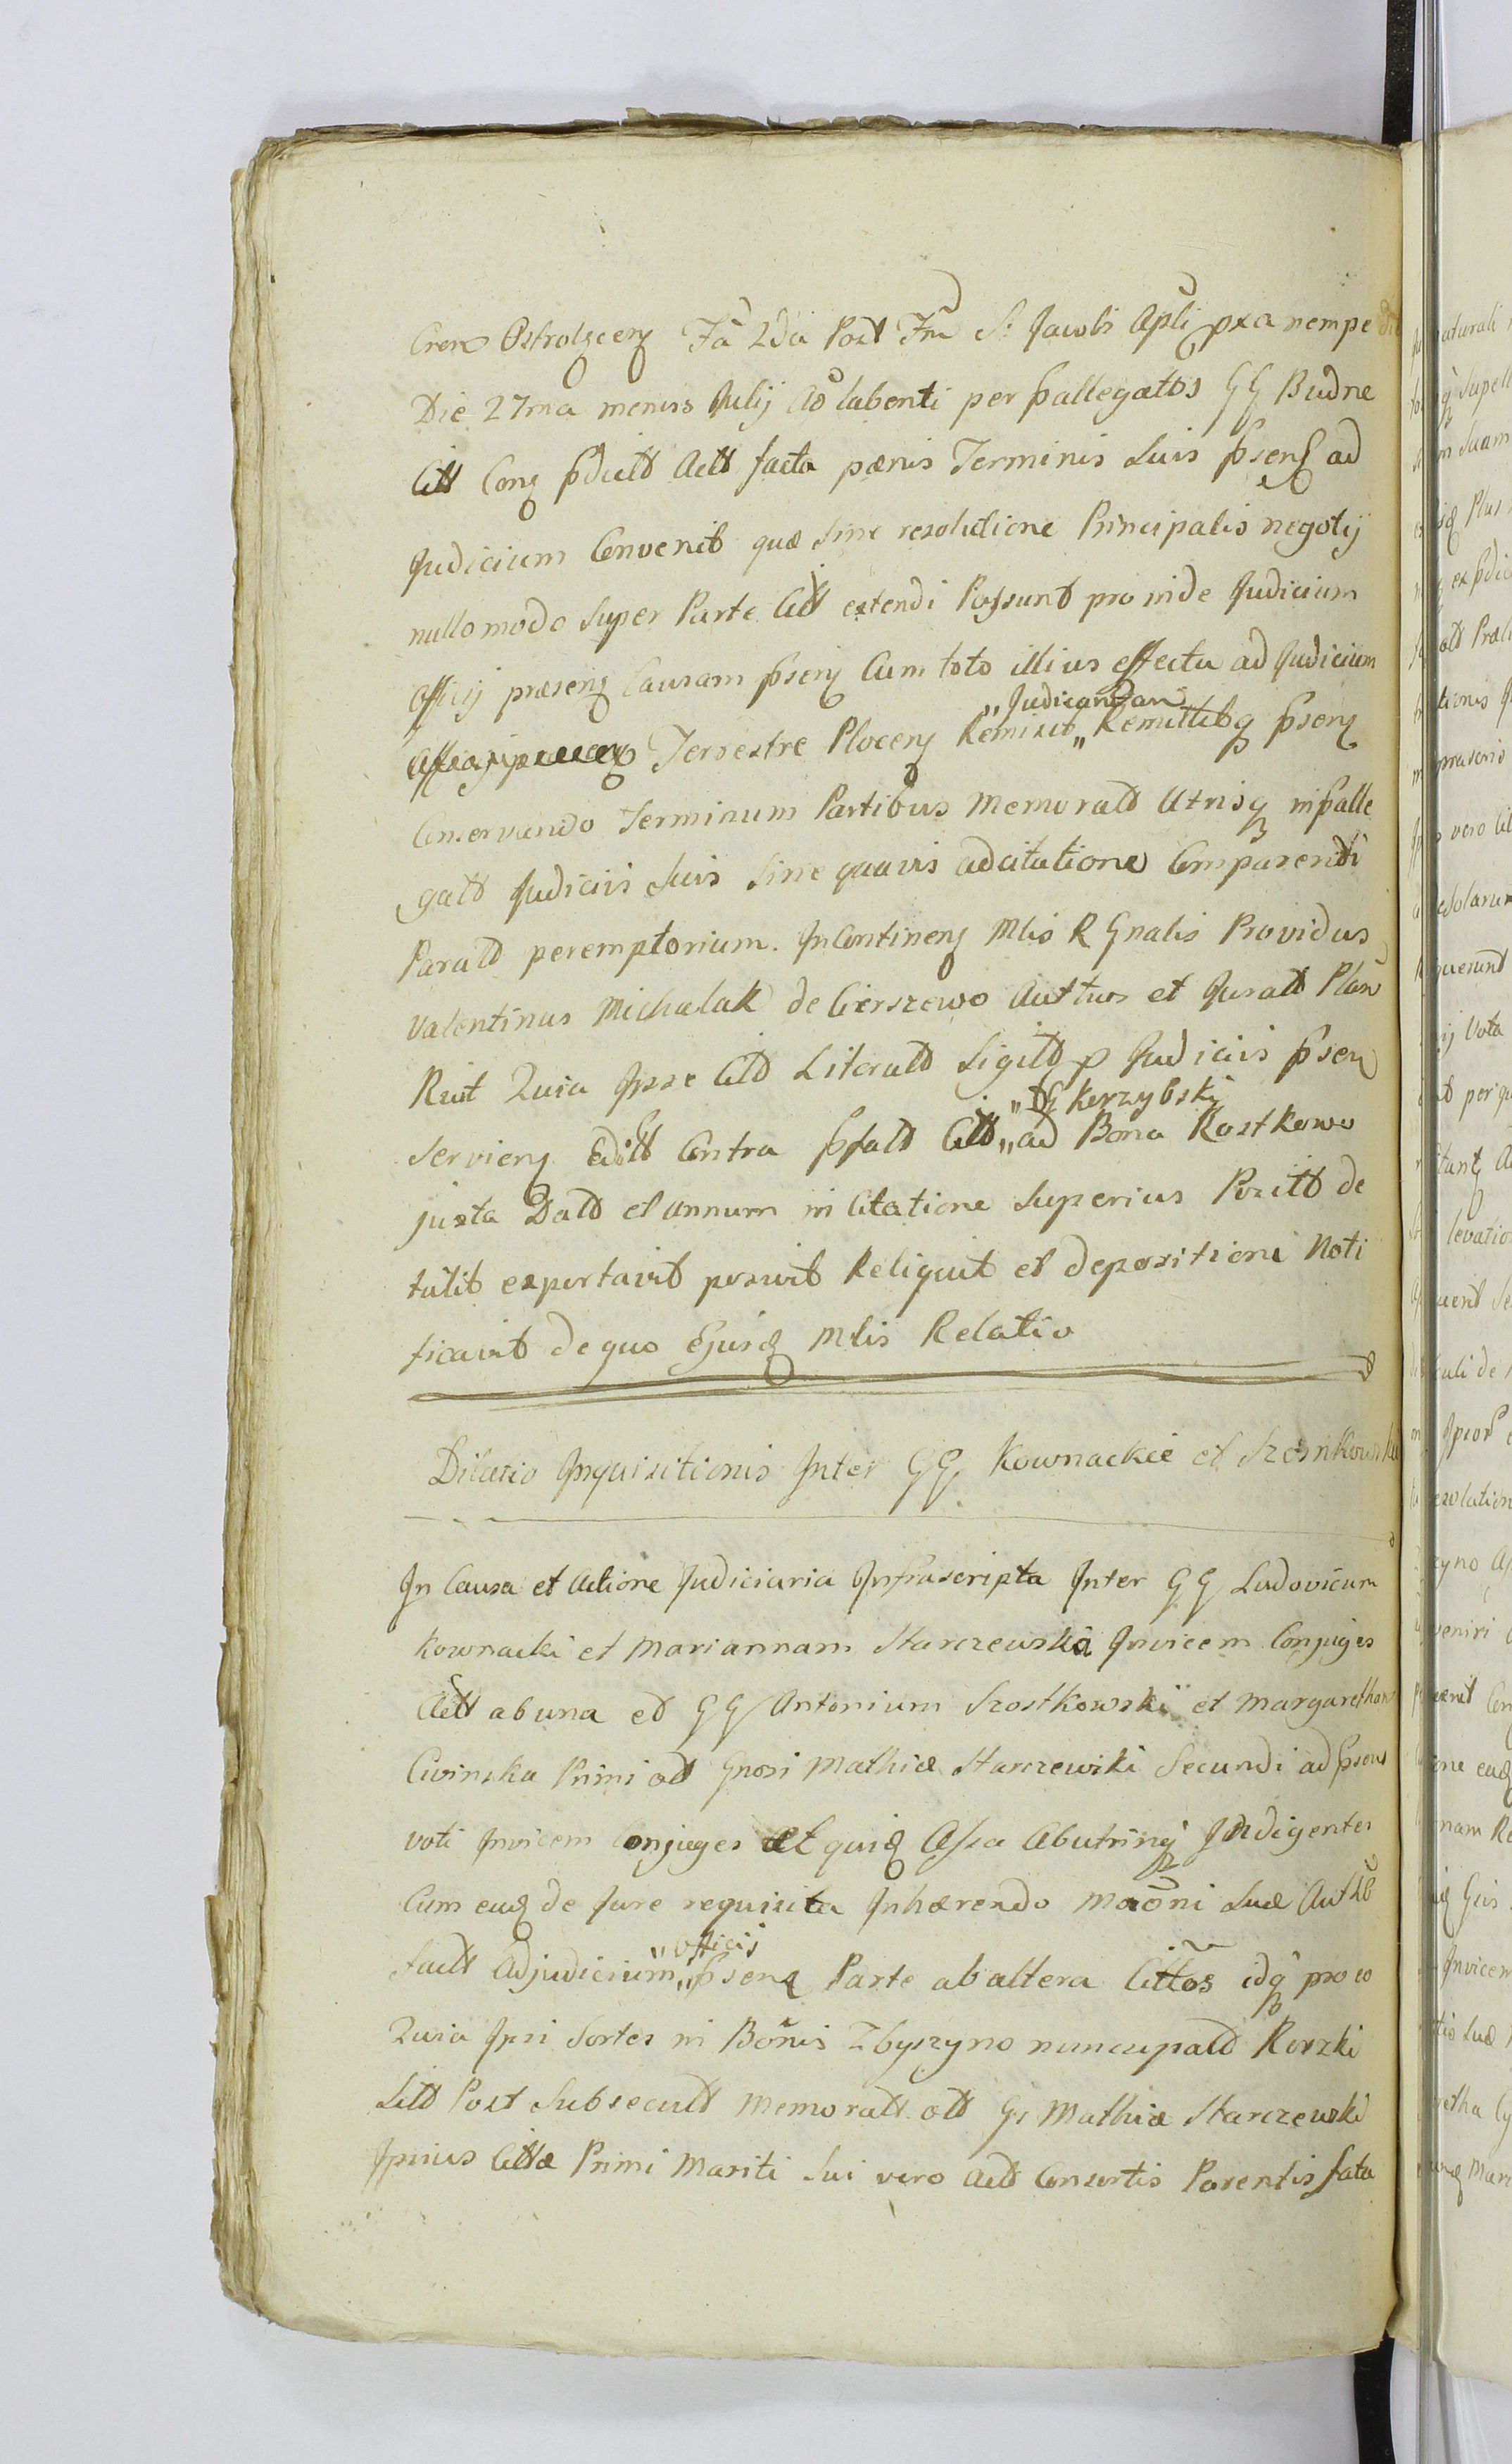 Cren Ostrolęcen Fa 2da Post Fm S. Jacobi Apli pxa nempe die
Die 27ma mensis Julij Ao labenti per pallegatos GG Budne
Citt Conq pdictt Actt facta pœnis Terminis Suis psenq ad
Judicium Convenit quæ Sine resolutione Principalis negotij
nullo modo Super Parte Citt extendi Possunt pro inde Judicium
Officij præsenq Causam psenq Cum toto illius effectu ad Judicium
Terrestre Plocenq Remisit „Judicandam„ Remittitq psenq
Conservando Terminum Partibus Memoratt Utrisq in palle
gatt Judiciis Suis Sine quavis adcitatione Comparendi
Paratt peremptorium. In Continenq Mlis R Gnalis Providus
Valentinus Michalak de Cierszewo Autturs et Juratt Plan
Ruit Quia Ipse Citt Literatt Sigitt p Judiciis psenq
Servienq Editt Contra pfatt Citt „G Kerzybski„ ad Bona Rostkowo
juxta Datt et annum in Citatione Superius Positt de
tulit exportavit posuit Reliquit et depositioni Noti
ficavit de quo Ejusq Mlis Relatio
Dilatio Inquisitionis Inter GG Kownackie et
In Causa et Actione Judiciaria Infrascripta Inter GG Ludovicum
Kownacki et Mariannam Starczewska Invicem Conjuges
Actt ab una et GG Antonium Szostkowski et Margaretham
Civinska Primi ott Gnosi Mathiæ Starczewski Secundi ad psens
voti Invicem Conjuges et quiq Assa Abutrinq Indigentes
Cum euq de Jure requisita Inhærendo Maoni Suæ Authb
factt Adjudicium „Officij„ psenq Parte ab altera Cittos idq pro eo
Quia Ipsi Sortes in Bonis Zbyszyno nuncupatt Rerzki
Sitt Post Subsecutt memoratt ott Gi Mathiæ Starczewski
Ipsius Cittæ Primi Mariti Sui vero Actt Consortis Parentis fata